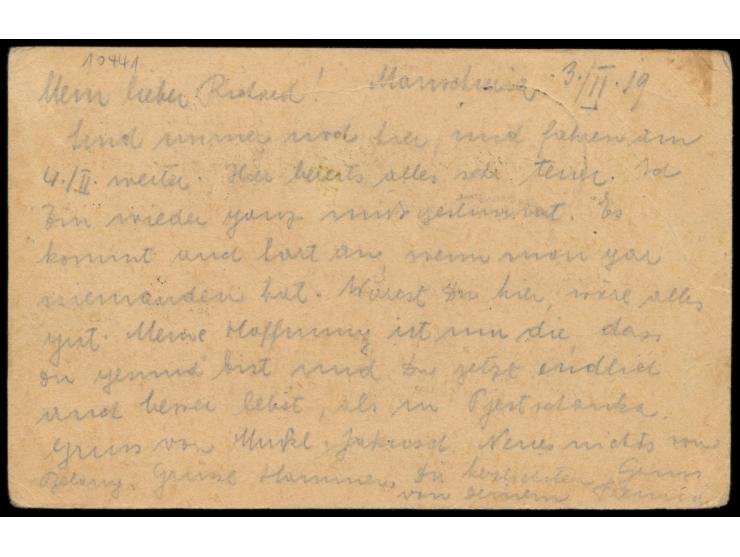 10441
Mein lieber Richard! Manschuria 3./II.19
Sind immer noch hier, und fahren am
4./II. weiter. Hier bereits alles sehr teuer. Ich
bin wieder ganz missgestimmt. Es
kommt auch hart an, wenn man gar
niemanden hat. Wärest Du hier, wäre alles
gut. Meine Hoffnung ist nur die, dass
du gesund bist und Du jetzt endlich
auch besser lebst, als in Pjestschanka.
Gruss von Neues nichts von
Belang. Grüsse Du herzlichsten Gruss
von deinem